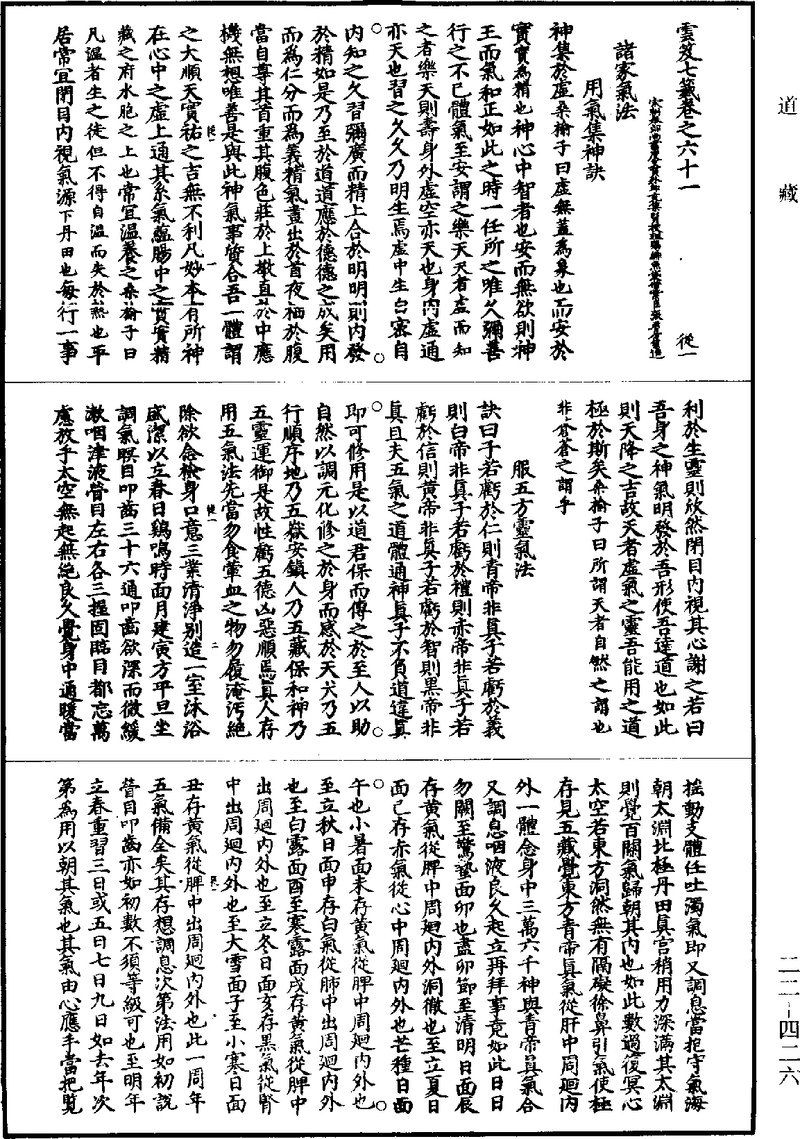 道藏
雲笈七籤卷之六十一
從一
諸家氣法
用氣集神訣
神集於虛桑榆子曰虛無蓋為象也而安於
實實為精也神心中智者也安而無欲則神
王而氣和正如此之時一任所之唯久彌善
行之不已體氣至安謂之樂天天者虛而知
之者樂天則壽身外虛空亦天也身內虛通
亦天也習之久久乃明生焉虛中生白室自
內知之久習彌廣而精上合於明明則內發
於精如是乃至於道道應於德德之成矣用
而為仁分而為義精氣晝出於首夜栖於腹
當自尊其首重其腹色莊於上敬直於中應
機無想唯善是與此神氣事質合吾一體謂
之大順天實祐之吉無不利凡妙本有所神
在心中之虛上通其系氣蘊腸中之實實精
藏之府水胞之上也常宜溫養之桑榆子曰
凡溫者生之徒但不得自溫而失於熱也平
居常宜閉目內視氣源下丹田也每行一事
利於生靈則放然閉目內視其心謝之若曰
吾身之神氣明發於吾形使吾達道也如此
則天降之吉故天者虛氣之靈吾能用之道
極於斯矣桑榆子曰所謂天者自然之謂也
非蒼蒼之謂乎
服五方靈氣法
訣曰子若虧於仁則青帝非真子若虧於義
則白帝非真子若虧於禮則赤帝非真子若
虧於信則黃帝非真子若虧於智則黑帝非
真且夫五氣之道體通神真子不負道違真
即可修用是以道君保而傳之於至人以助
自然以調元化修之於身而感於天天乃五
行順序地乃五嶽安鎮人乃五藏保和神乃
五靈運御是故性虧五德凶惡順焉真人存
用五氣法先當勿食葷血之物勿履淹污絕
除欲念檢身口意三業清淨別造一室沐浴
盛潔以立春日鷄鳴時面月建寅方平旦坐
調氣瞑目叩齒三十六通叩齒欲深而微緩
漱咽津液瞥目左右各三握固臨目都忘萬
慮放乎太空無起無絕良久覺身中通暖當
搖動支體任吐濁氣即又調息當抱守氣海
朝太淵北極丹田真宮稍用力深滿其太淵
則覺百關氣歸朝其內也如此數過復冥心
太空若東方洞然無有隔礙徐鼻引氣使極
存見五藏覺東方青帝真氣從肝中周迴內
外一體念身中三萬六千神與青帝真氣合
又調息咽液良久起立再拜事竟如此日日
勿闕至驚蟄面卯也盡卯節至清明日面辰
存黃氣從脾中周迴內外洞徹也至立夏日
面巳存赤氣從心中周迴內外也芒種日面
午也小暑面未存黃氣從脾中周迴內外也
至立秋日面申存白氣從肺中出周迴內外
也至白露面酉至寒露面戌存黃氣從脾中
出周迴內外也至立冬日面亥存黑氣從腎
中出周迴內外也至大雪面子至小寒日面
丑存黃氣從脾中出周迴內外也此一周年
五氣備全矣其存想調息次第法用如初說
瞥目叩齒亦如初數不須等級可也至明年
立春重習三日或五日七日九日如去年次
第為用以朝其氣也其氣由心應手當把覽
二二-四二六